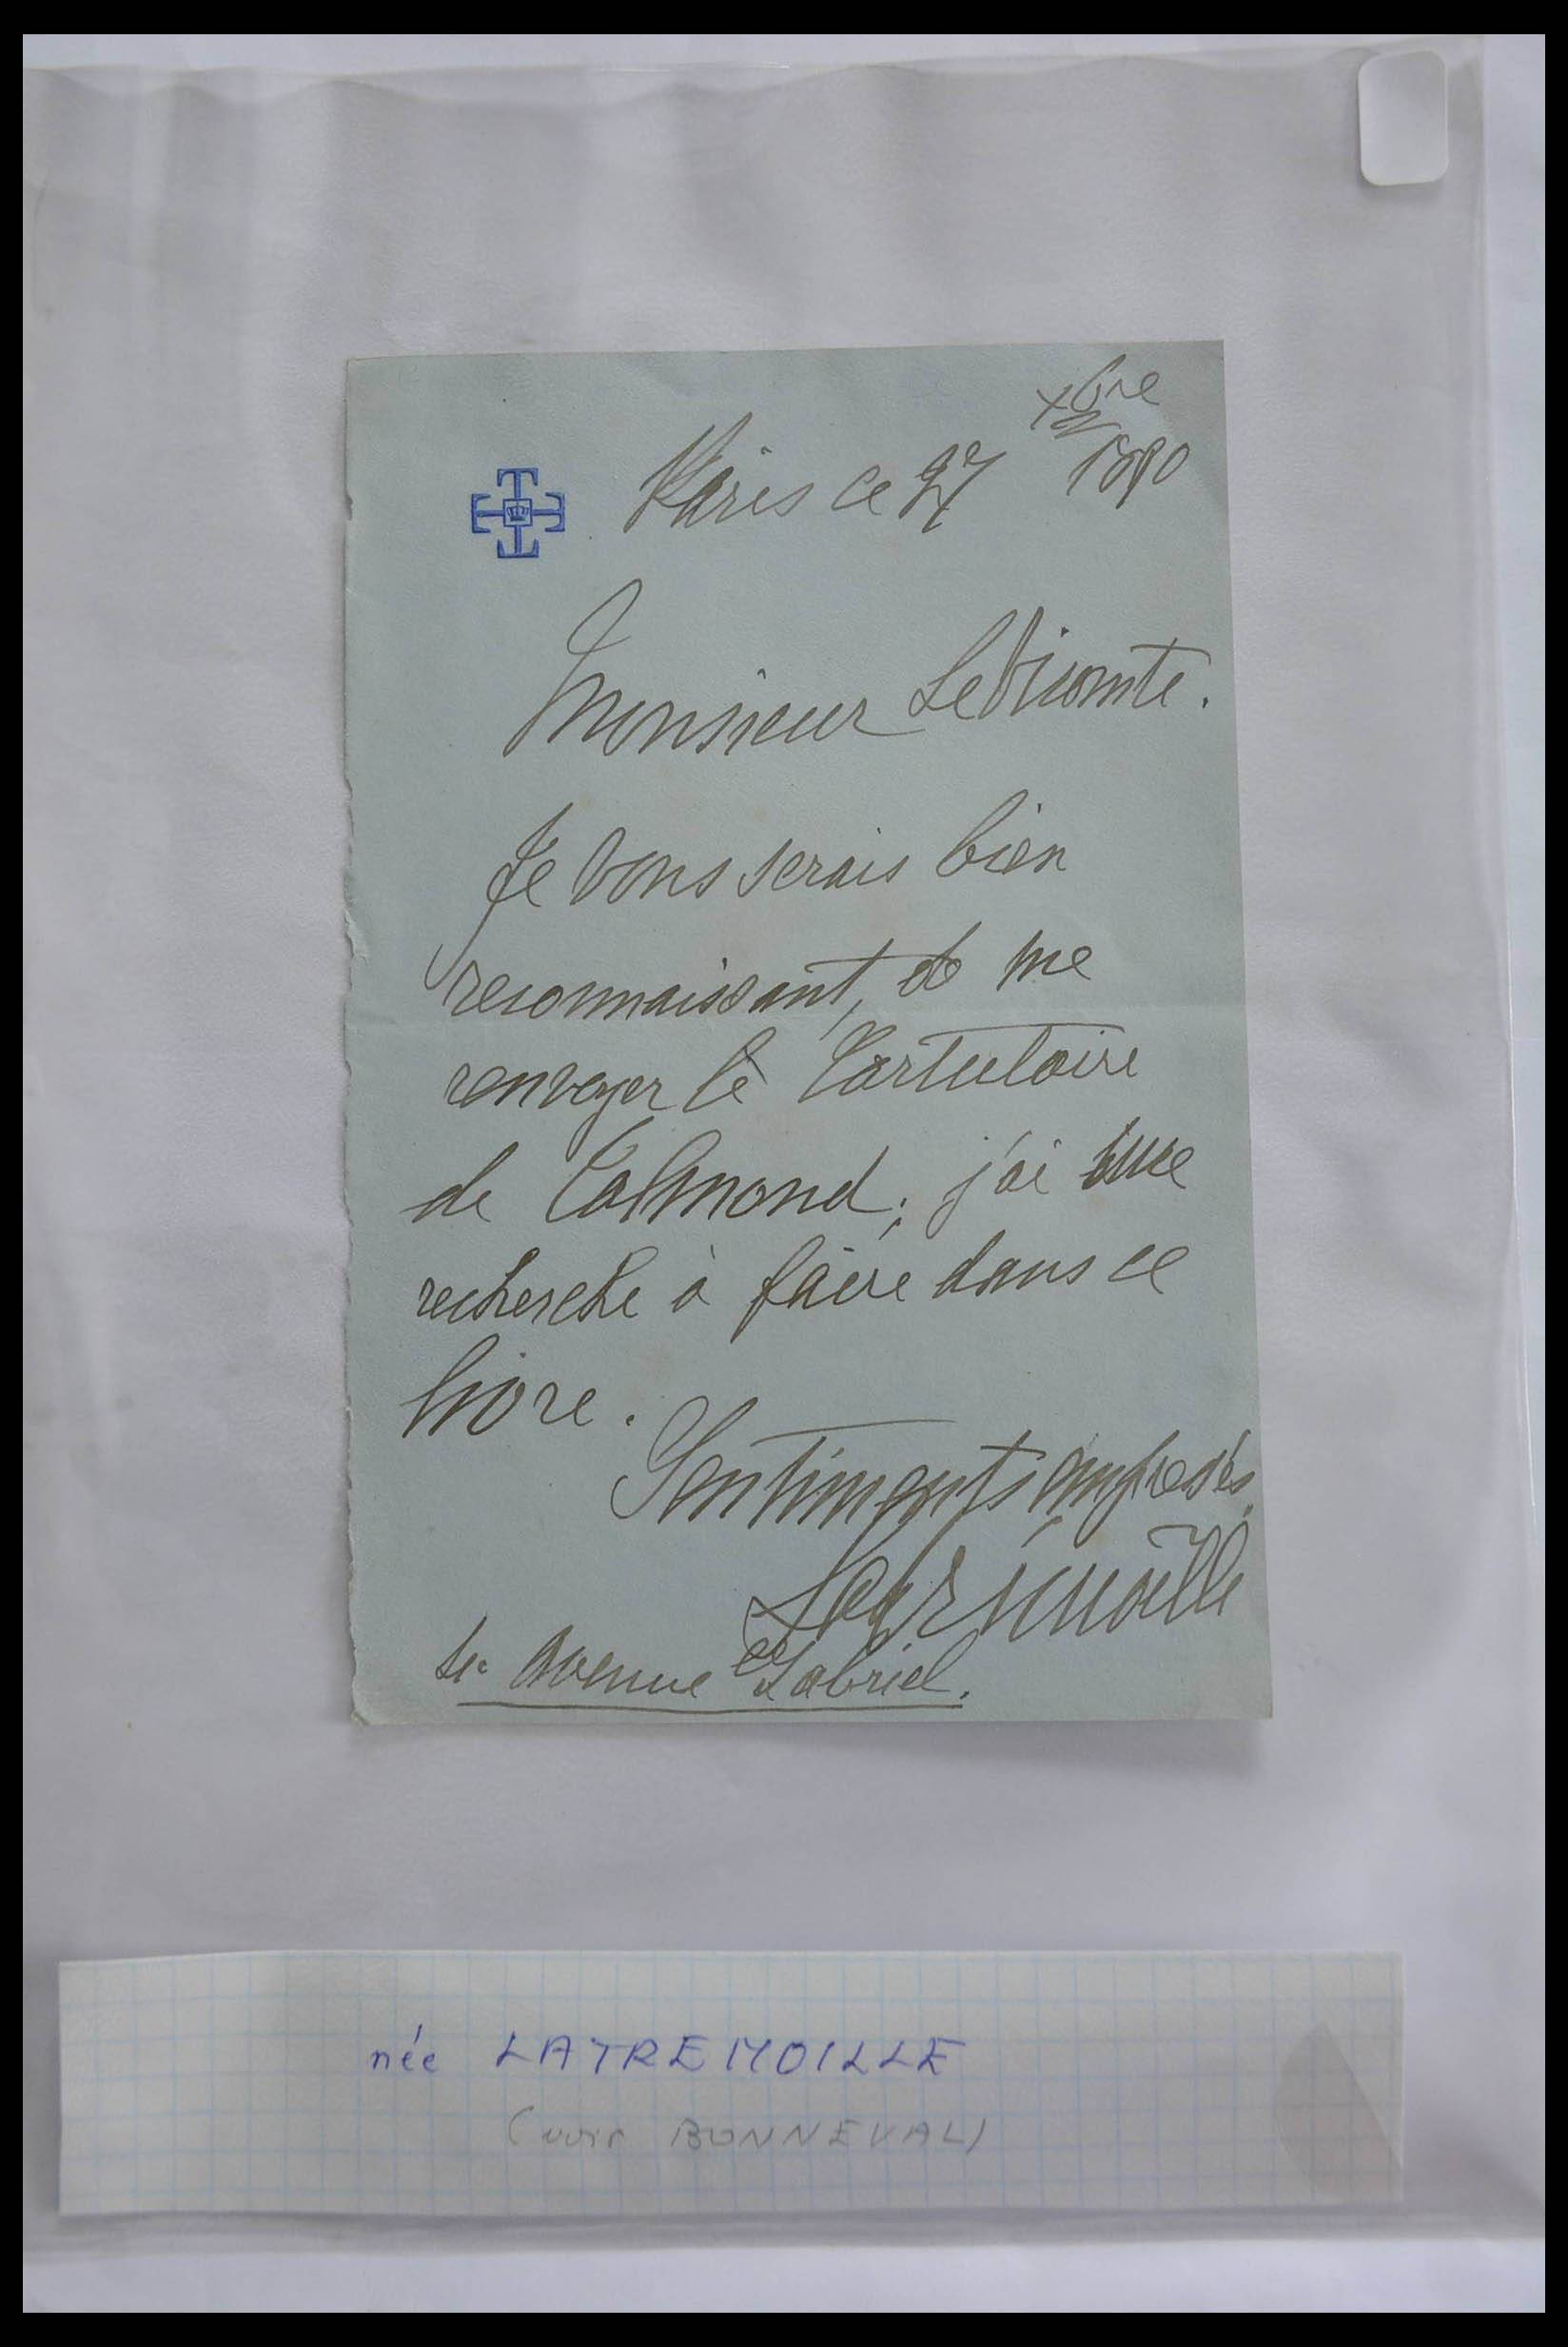 Paris ce 27 Xbre 1890
Monsieur Le Vicomte.
Je vous serais bien
reconnaissant, de me
renvoyer le Cartulaire
de Talmond; j'ai une
recherche à faire dans ce
livre.
Sentiments empressés.
La Trémoille
4. Avenue Gabriel.
née LATREMOILLE
(voir BONNEVAL)